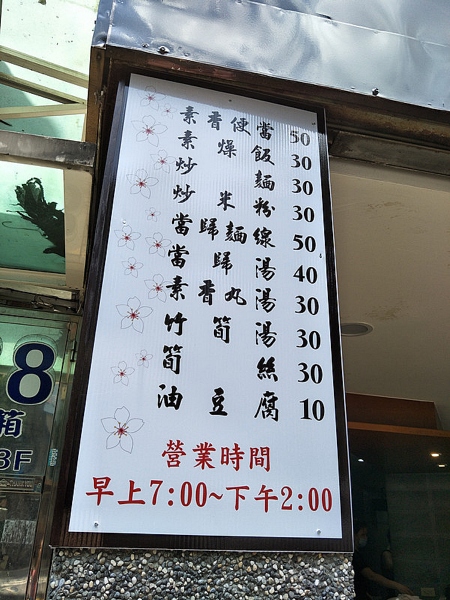 素香便當 50
素燥飯 30
炒麵 30
炒米粉 30
當歸麵線 50
當歸湯 40
素香丸湯 30
竹筍湯 30
筍絲 30
油豆腐 10
營業時間
早上7:00~下午2:00
8
箱
3F